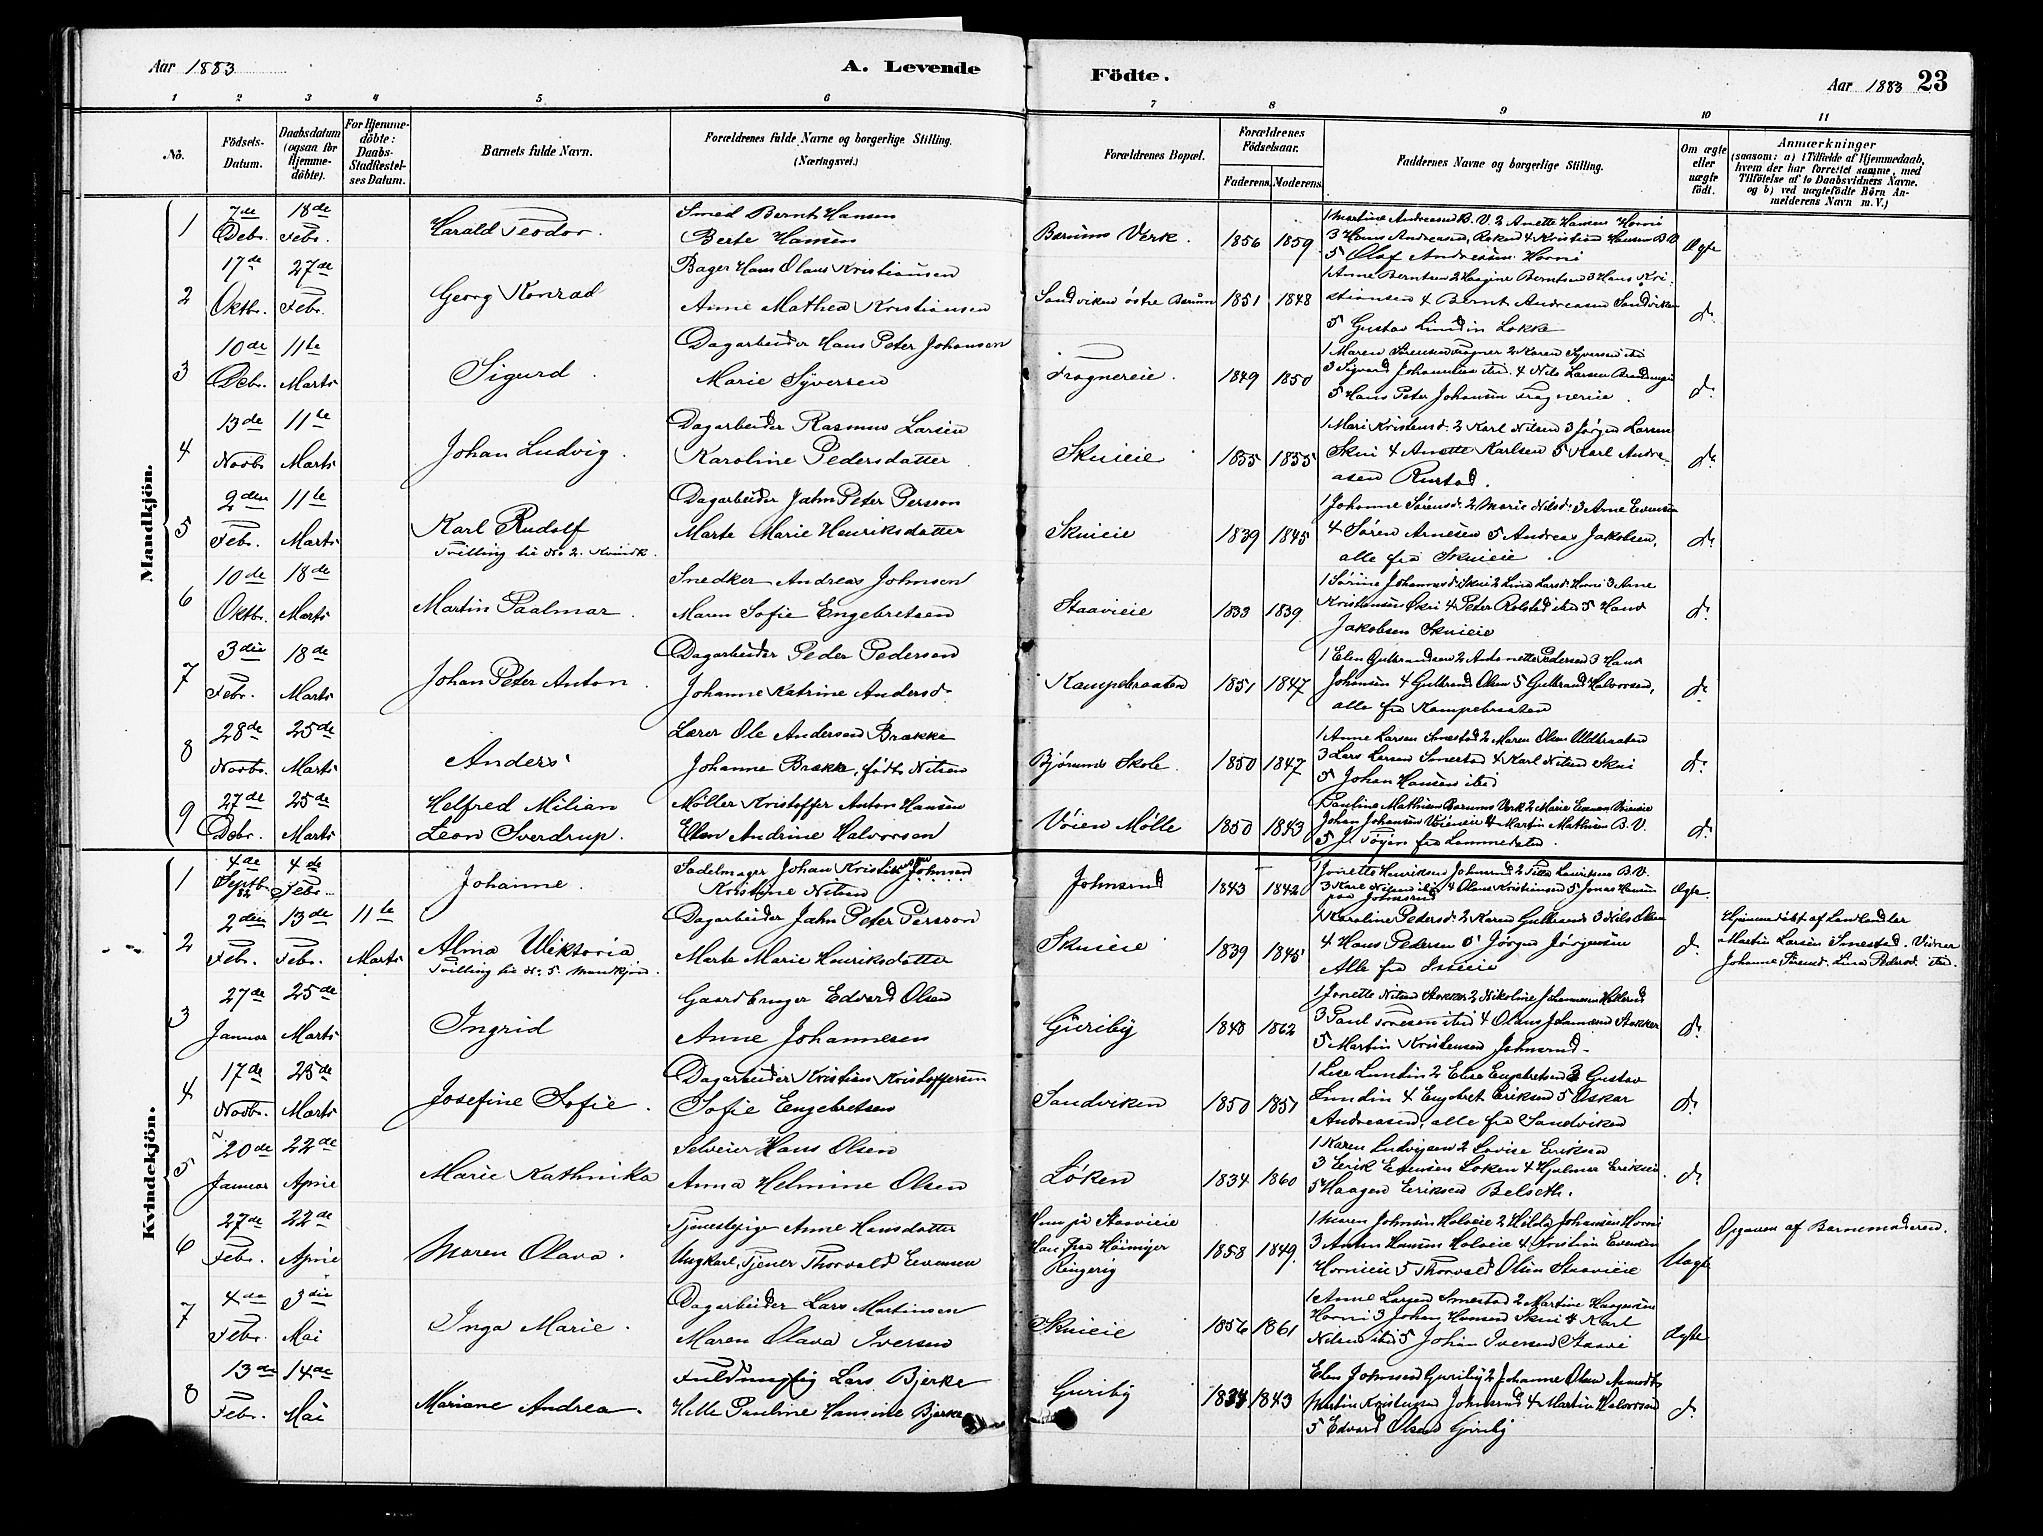 Aar 1883
A. Levende
Födte.
Aar 1883 23
1 2 3 4 5 6 7 8 9 10 11
No.
Födsels-
Datum.
Daabsdatum
(ogsaa for
Hjemme-
döbte).
For Hjemme-
döbte:
Daabs-
Stadfæstel-
ses Datum.
Barnets fulde Navn.
Forældrenes fulde Navne og borgerlige Stilling.
(Næringsvei.)
Forældrenes Bopæl.
Forældrenes
Födselsaar.
Faderens. Moderens.
Faddernes Navne og borgerlige Stilling.
Om ægte
eller
uægte
födt.
Anmærkninger
(saasom: a) i Tilfælde af Hjemmedaab,
hvem der har forrettet samme, med
Tilföielse af to Daabsvidners Navne.
og b) ved uægtefödte Börn An-
melderens Navn m. V.)
Mandkjön.
1 7de Debr. 18de Febr.
Harald Teodor.
Smed Bernt Hansen
Berte Hansen
Bærums Verk. 1856 1859
1 Martine Andreasen B. V. 2 Anette Hansen Horni
3 Hans Andreasen, Kristian Hansen B.V.
5 Olaf Andreasen Horni
Ægte
2 17de Oktbr. 27de Febr.
Georg Konrad
Bager Hans Olaus Kristiansen
Anne Mathea Kristiansen
Sandviken østre Bærum 1851 1848
1 Anne Berntsen 2 Hagine Berntsen 3 Hans Kri-
stiansen 4 Bernt Andreasen Sandviken
5 Gustav Lundin Løkke
do
3 10de Debr. 11te Marts
Sigurd
Dagarbeider Hans Peter Johansen
Marie Syversen
Frognereie. 1849 1850
1 Maren Sørensen Frogner 2 Karen Syversen ibd
3 Sigvard Johannesen ibd. 4 Nils Larsen
5 Hans Peter Johansen Frognereie
do
4 13de Novbr. 11te Marts
Johan Ludvig.
Dagarbeider Rasmus Larsen
Karoline Pedersdatter
Skuieie 1855 1855
1 Mari Kristensd. 2 Karl Nilsen 3 Jørgen Larsen
Skui 4 Anette Karlsen 5 Karl Andre-
asen Rustad.
do
5 2den Febr. 11te Marts
Karl Rudolf
Tvilling til No 2. Kvindk.
Dagarbeider Jahn Peter Persson
Marte Marie Henriksdatter
Skuieie 1839 1845
1 Johanne Sørensd. 2 Marie Nilsd. 3 Anne Evensen
4 Søren Arnesen 5 Andreas Jakobsen,
alle fra Skuieie.
do
6 10de Oktbr. 18de Marts
Martin Paalmar.
Snedker Andreas Johnsen
Maren Sofie Engebretsen
Staavieie 1833 1839
1 Sørine Johannesd. Skui 2 Lina Larsd. Horni 3 Arne
Kristiansen Skui 4 Peter Rolstad ibd 5 Hans
Jakobsen Skuieie
do
7 3die Febr. 18de Marts
Johan Peter Anton.
Dagarbeider Peder Pedersen
Johanne Katrine Andersd.
Kampebraaten 1851 1847
1 Elen Gulbrandsen 2 Antonette Pedersen 3 Hans
Johansen 4 Gulbrand Olsen 5 Gulbrand Halvorsen,
alle fra Kampebraaten
do
8 28de Novbr. 25de Marts
Anders
Lærer Ole Andersen Brække
Johanne Brække, født Nilsen
Bjørums Skole. 1850 1847
1 Anne Larsen Smestad 2 Maren Olsen
3 Lars Larsen Smestad 4 Karl Nilsen Skui
5 Johan Hansen ibd
do
9 27de Debr. 25de Marts
Helfred Milian
Leon Sverdrup.
Møller Kristoffer Anton Hansen
Elen Andrine Halvorsen
Vøien Mølle 1850 1843
1 Pauline Mathisen Bærums Verk 2 Marie Evensen Vøieneie
Johan Johansen Vøieneie 4 Martin Mathisen B.V.
5 J. fra Lommedalen.
do
Kvindekjön.
1 4de Septbr. 82 4de Febr.
Johanne.
Sadelmager Johan Kristian Johnsen
Kristine Nilsen
Johnsrud 1843 1842
3 Karl Nilsen ibd 4 Olaus Kristiansen 5 Jonas Hansen
fra Johnsrud
Ægte
2 2den Febr. 13de Febr. 11te Marts
Alma Wiktoria
Tvilling til No. 5. Mandkjøn.
Dagarbeider Jahn Peter Persson
Marte Marie Henriksdatter
Skuieie 1839 1845
1 Karoline Pedersd. 2 Karen Gulbrands 3 Nils Olsen
4 Hans Pedersen 5 Jørgen Jørgensen
Alle fra
do
Hjemmedøbt af Landhandler
Martin Larsen Smestad. Vidner
Johanne Sørensd. Lina Pedersd. ibd.
3 27de Januar 25de Marts
Ingrid
Gaardbruger Edvard Olsen
Anne Johannesen
Guriby 1848 1862
1 Jonette Nilsen Stokker 2 Nikoline Johannesen
3 Paul ibd 4 Olaus Johannesen Stokker
5 Martin Kristensen Johnsrud
do
4 17de Novbr. 25de Marts
Josefine Sofie.
Dagarbeider Kristian Kristoffersen
Sofie Engebretsen
Sandviken 1850 1851
1 Lise Lundin 2 Elise Engebretsen 3 Gustav
Lundin 4 Engebret Eriksen 5 Oskar
Andreasen, alle fra Sandviken
do
5 20de Januar 22de April
Marie Kathinka
Selveier Hans Olsen
Anna Helmine Olsen
Løken 1834 1860
1 Karen Ludvigsen 2 Lovise Eriksen
3 Erik Evensen Løken 4 Hjalmar Eriksen
5 Haagen Eriksen Belseth.
do
6 27de Febr. 22de April
Maren Olava.
Tjenestepige Anne Hansdatter
Ungkarl, Tjener Thorvald Evensen
Hun på Staavieie
Han fra
Ringerig
1858 1849.
1 Maren Johnsen Holveie 2 Hilda Johansen Horni
3 Anton Hansen Holveie 4 Kristian Evensen
Hornieie 5 Thorvald Olsen Staavieie
Uægte
Opgaven af Barnemoderen.
7 4de Febr. 3die Mai
Inga Marie.
Dagarbeider Lars Martinsen
Maren Olava Iversen
Skuieie 1856 1861
1 Anne Larsen Smestad 2 Martine Haagensen
Horni 3 Johan Hansen Skui 4 Karl
Nilsen ibd 5 Johan Iversen Staavi
Ægte
8 13de Febr. 14de Mai
Mariane Andrea.
Fuldmægtig Lars Bjerke
Helle Pauline Hansine Bjerke
Guriby 1834 1843
Elen Johnsen Guriby 2 Johanne Olsen
Martin Kristensen Johnsrud 4 Martin Halvorsen
5 Edvard Olsen Guriby
do